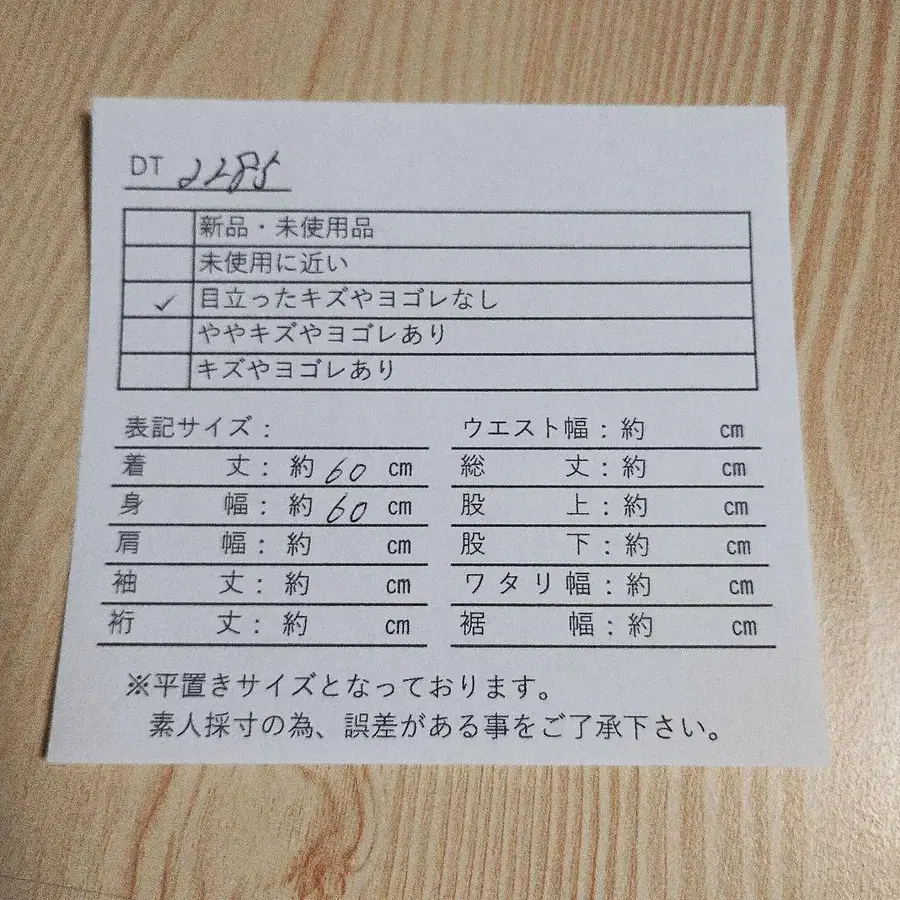 DT 2285
新品・未使用品
未使用に近い
✓ 目立ったキズやヨゴレなし
ややキズやヨゴレあり
キズやヨゴレあり
表記サイズ：
着丈：約60㎝
身幅：約60㎝
肩幅：約㎝
袖丈：約㎝
裄丈：約㎝
ウエスト幅：約㎝
総丈：約㎝
股上：約㎝
股下：約㎝
ワタリ幅：約㎝
裾幅：約㎝
※平置きサイズとなっております。
素人採寸の為、誤差がある事をご了承下さい。